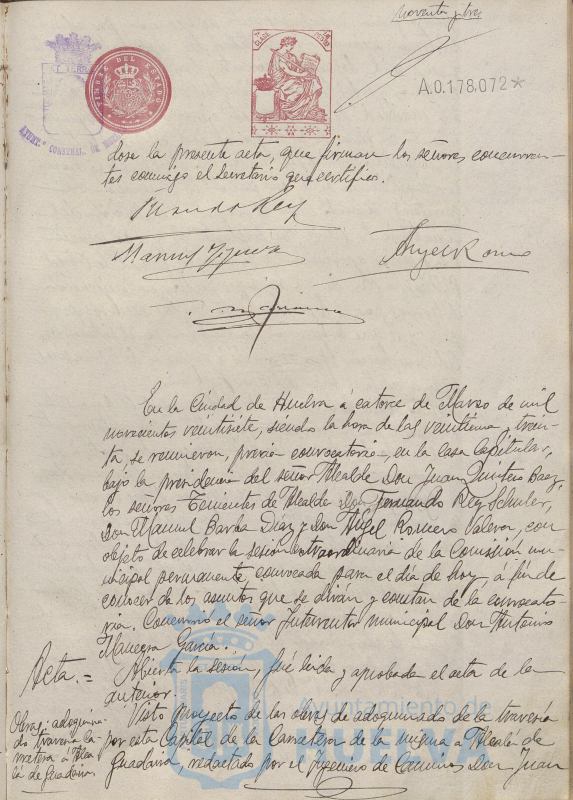 noventa y tres
TIMBRE DEL ESTADO
CLASE
A.0.178.072*
dose la presente acta, que firman los señores concurren-
tes conmigo el Secretario que certifico.
En la Ciudad de Huelva á catorce de Marzo de mil
novecientos veintisiete, siendo la hora de las veintiuna y trein-
ta, se reunieron, previa convocatoria, en la casa Capitular,
bajo la presidencia del señor Alcalde Don Juan Quintero Baez,
los señores Tenientes de Alcalde Don Fernando Rey Schuler,
Don Manuel Barba Diaz y Don Angel Romero Valera, con
objeto de celebrar la sesión extraordinaria de la Comisión mu-
nicipal permanente, convocada para el día de hoy, á fin de
conocer de los asuntos que se dirán y constan de la convocato-
ria. Concurrió el señor Interventor municipal Don Antonio
García.
Acta.= Abierta la sesión, fué leida y aprobada el acta de la
anterior.
Obras: adoquina-
do travesía ca-
rretera á Alca-
lá de Guadaira.
Visto proyecto de las obras de adoquinado de la travesía
por esta Capital de la Carretera de la á Alcalá de
Guadaira, redactado por el Ingeniero de Caminos Don Juan
Ayuntamiento de
HUELVA